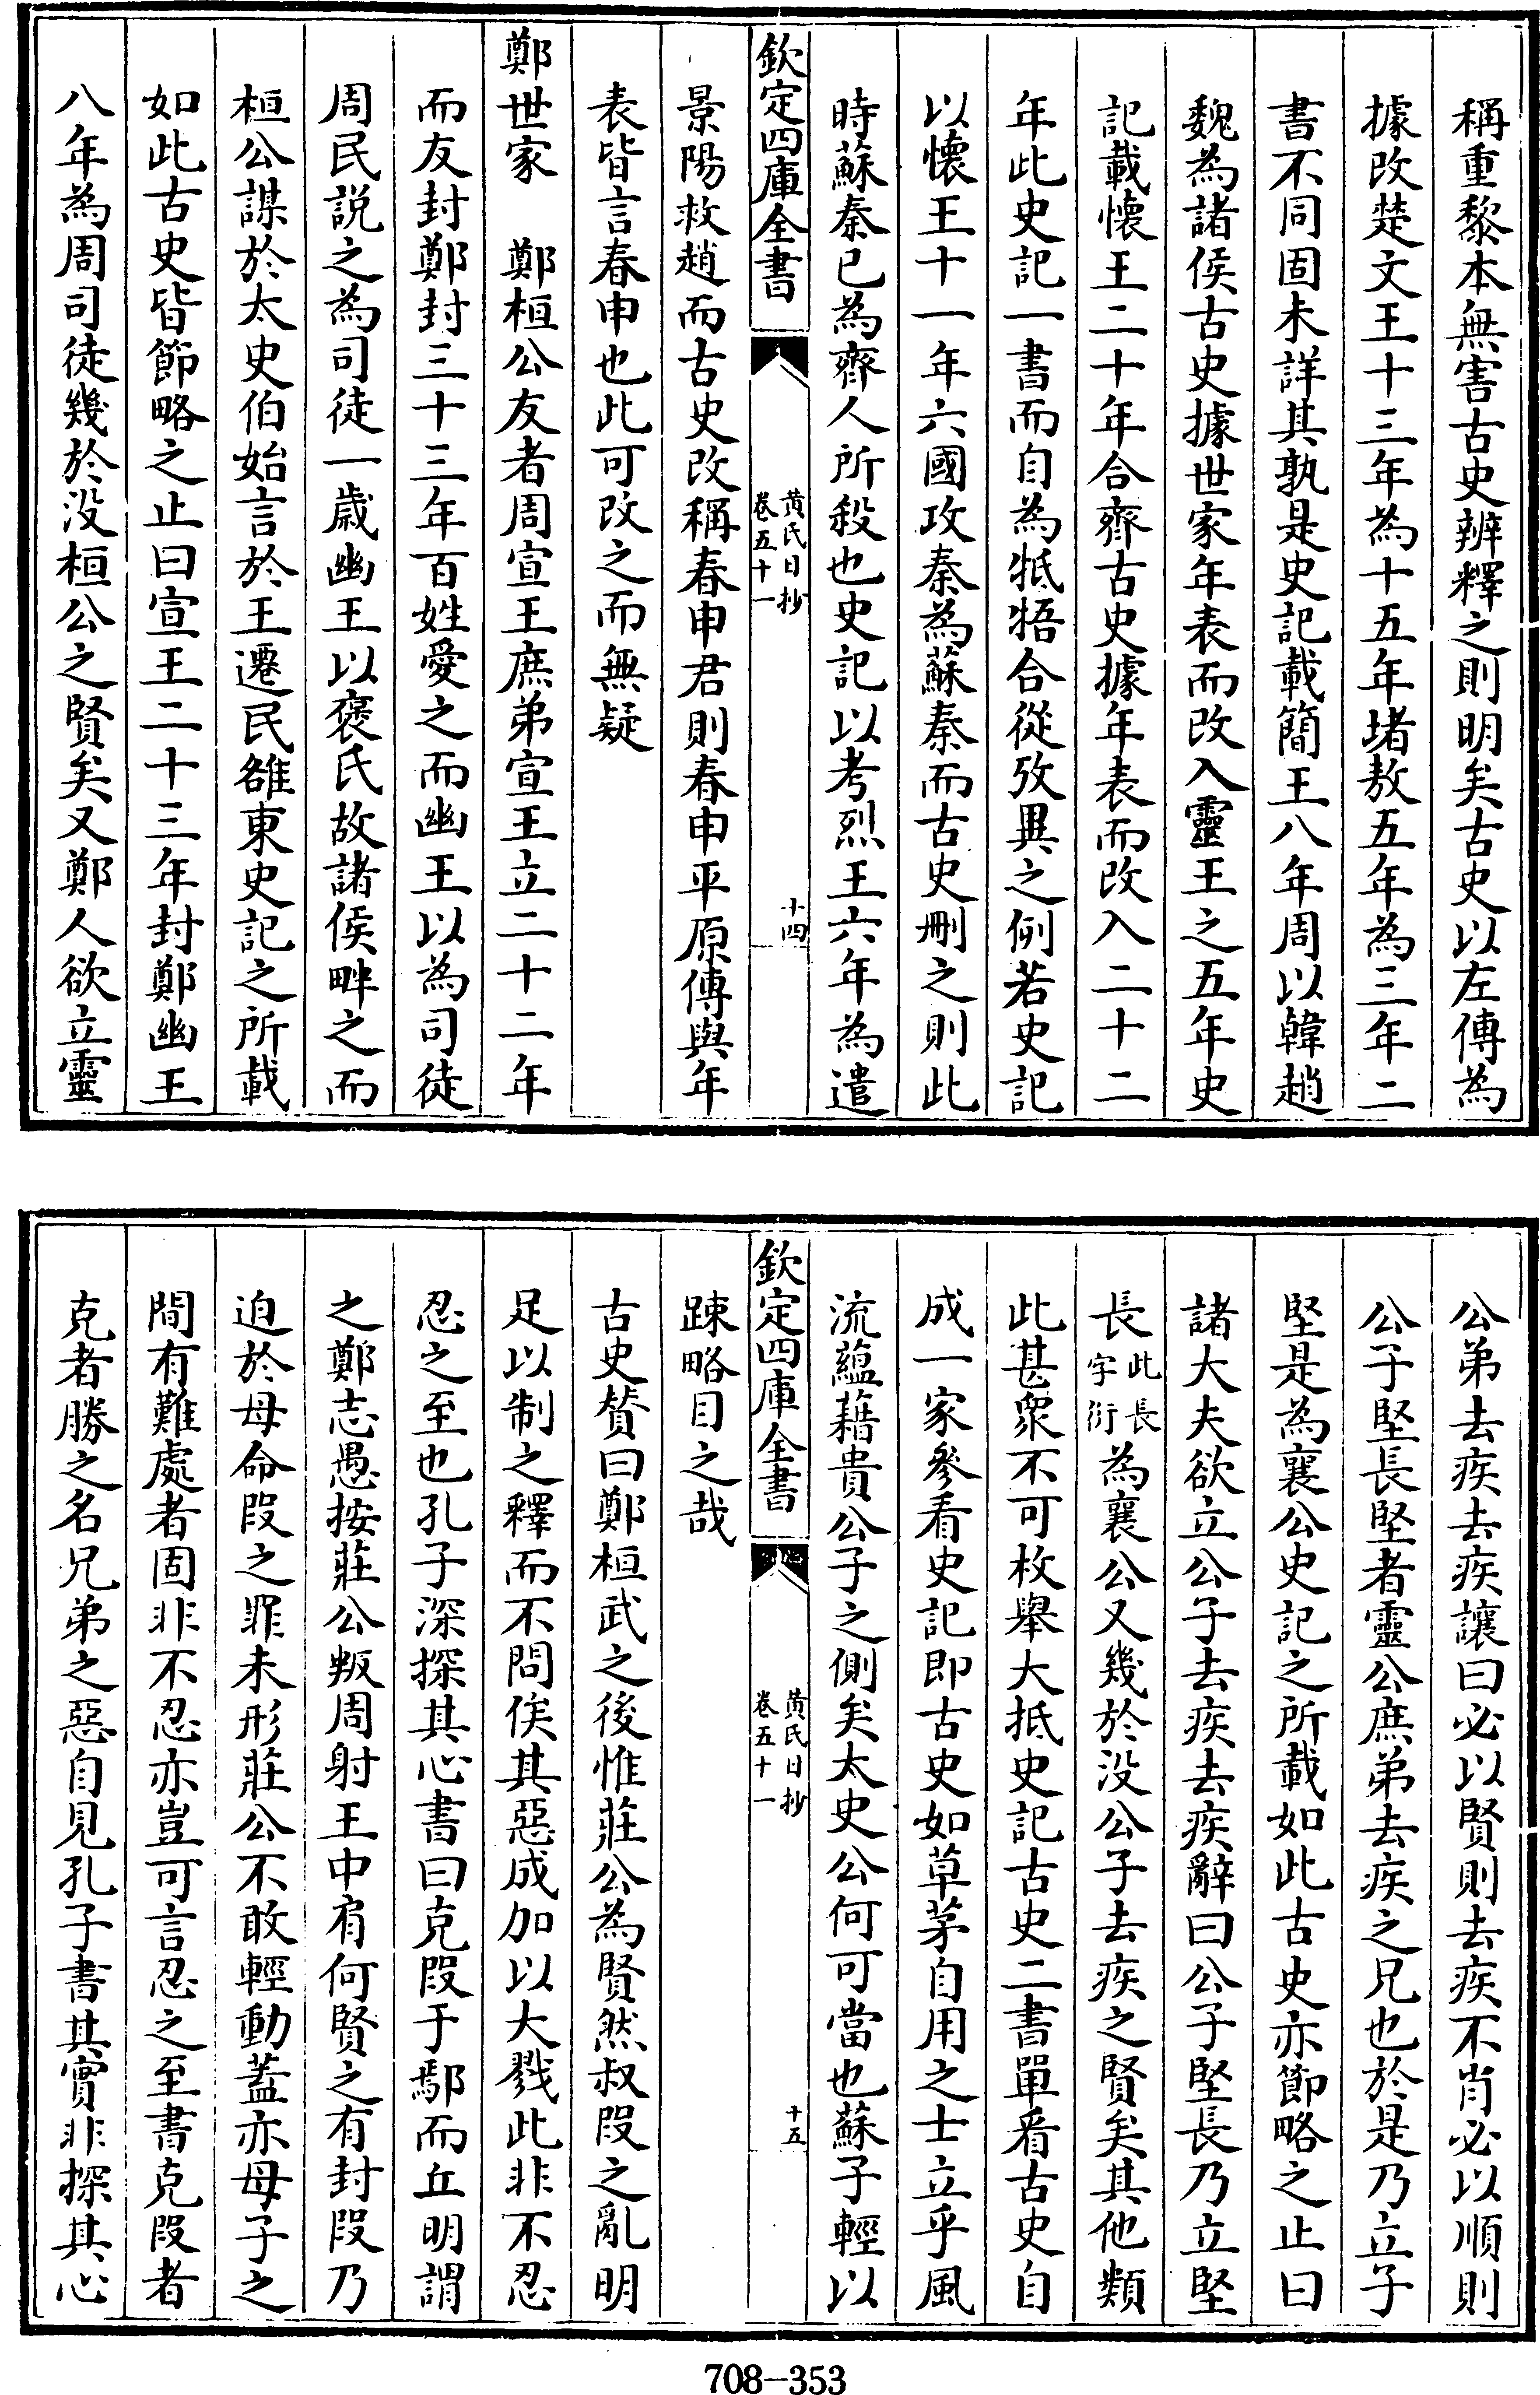 稱重黎本無害古史辨釋之則明矣古史以左傳為
據改楚文王十三年為十五年堵敖五年為三年二
書不同固未詳其孰是史記載簡王八年周以韓趙
魏為諸侯古史據世家年表而改入靈王之五年史
記載懷王二十年合齊古史據年表而改入二十二
年此史記一書而自為牴牾合從攷異之例若史記
以懷王十一年六國攻秦為蘇秦而古史刪之則此
時蘇秦已為齊人所殺也史記以考烈王六年為遣
欽定四庫全書
黃氏日抄
卷五十一
十四
景陽救趙而古史改稱春申君則春申平原傳與年
表皆言春申也此可改之而無疑
鄭世家 鄭桓公友者周宣王庶弟宣王立二十二年
而友封鄭封三十三年百姓愛之而幽王以為司徒
周民説之為司徒一歲幽王以褒氏故諸侯畔之而
桓公謀於太史伯始言於王遷民雒東史記之所載
如此古史皆節略之止曰宣王二十三年封鄭幽王
八年為周司徒幾於没桓公之賢矣又鄭人欲立靈
公弟去疾去疾讓曰必以賢則去疾不肖必以順則
公子堅長堅者靈公庶弟去疾之兄也於是乃立子
堅是為襄公史記之所載如此古史亦節略之止曰
諸大夫欲立公子去疾去疾辭曰公子堅長乃立堅
長此長字衍為襄公又幾於没公子去疾之賢矣其他類
此甚衆不可枚舉大抵史記古史二書單看古史自
成一家參看史記即古史如草茅自用之士立乎風
流蘊藉貴公子之側矣太史公何可當也蘇子輕以
欽定四庫全書
黃氏日抄
卷五十一
十五
踈略目之哉
古史贊曰鄭桓武之後惟莊公為賢然叔段之亂明
足以制之釋而不問俟其惡成加以大戮此非不忍
忍之至也孔子深探其心書曰克段于鄢而丘明謂
之鄭志愚按莊公叛周射王中肩何賢之有封段乃
迫於母命段之罪未形莊公不敢輕動蓋亦母子之
間有難處者固非不忍亦豈可言忍之至書克段者
克者勝之名兄弟之惡自見孔子書其實非探其心
708-353